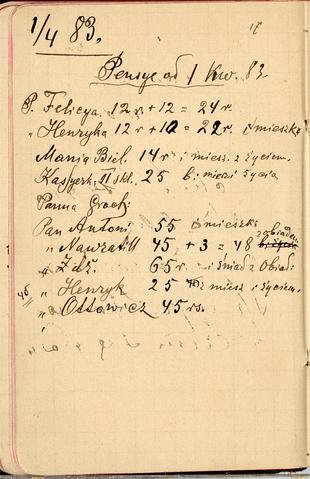 1/4 83.
Pensye od 1 Kw. 83.
P. Felicya 12 r. + 12 = 24 r.
" Henryka 12 r + 10 = 22 r. i mieszk:
Mania Biel. 14 r i miesz. z życiem.
25 b. miesz i życia
Panna
Pan Antoni 55 i mieszk:
" Nawratill 45 + 3 = 48 z obiadem
" Zdz. 65 r. i śniad z Obiad:
" Henryk 25 miesz i życiem.
" Ottowicz 45 rs.